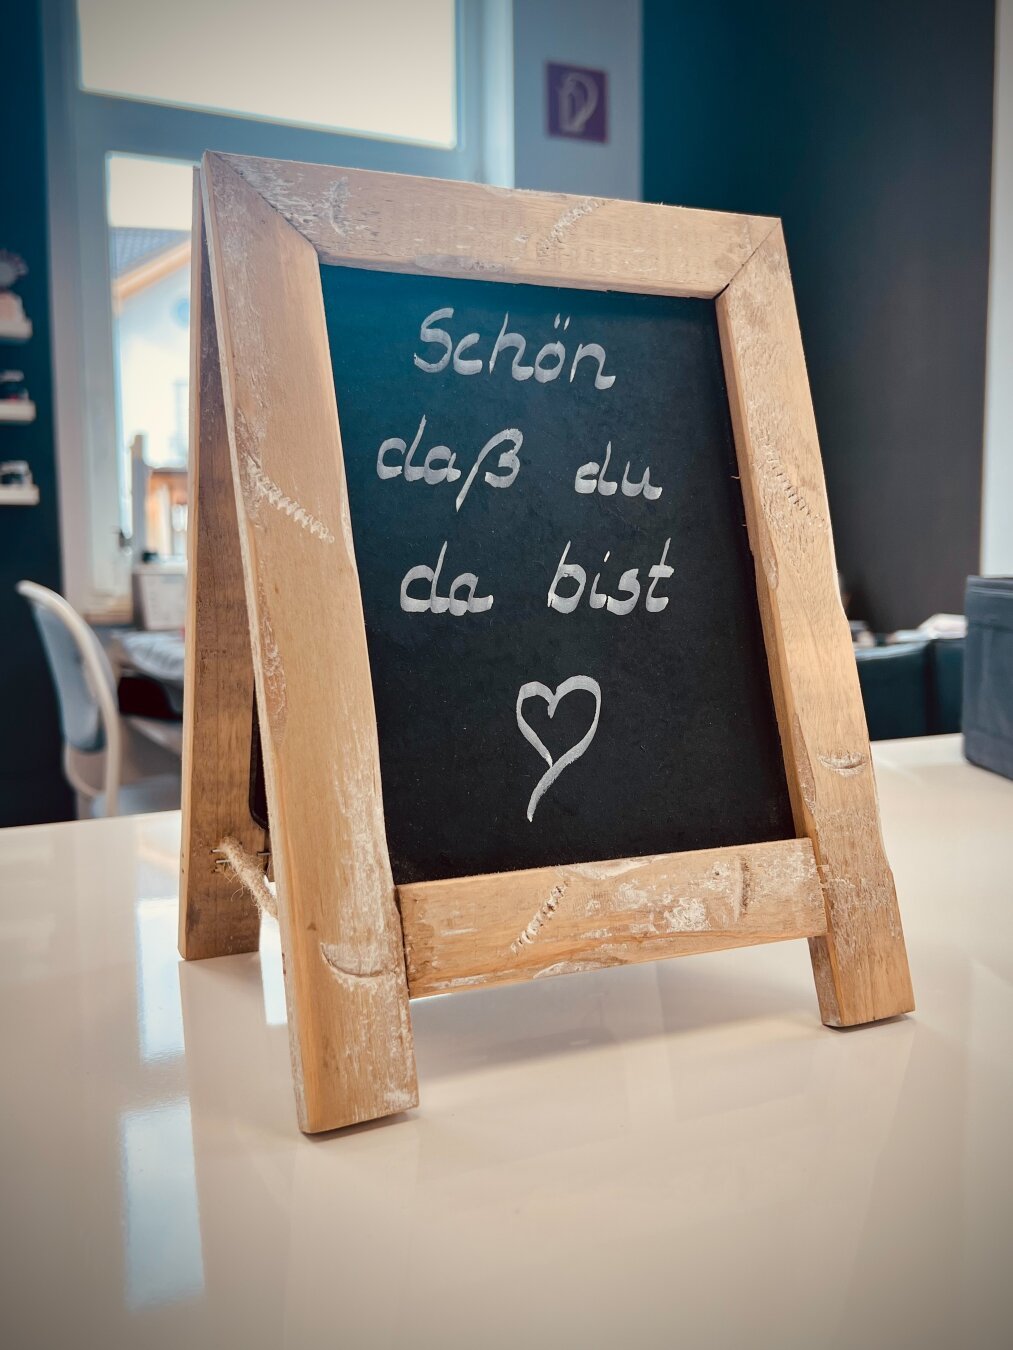 Schön
daß du
da bist